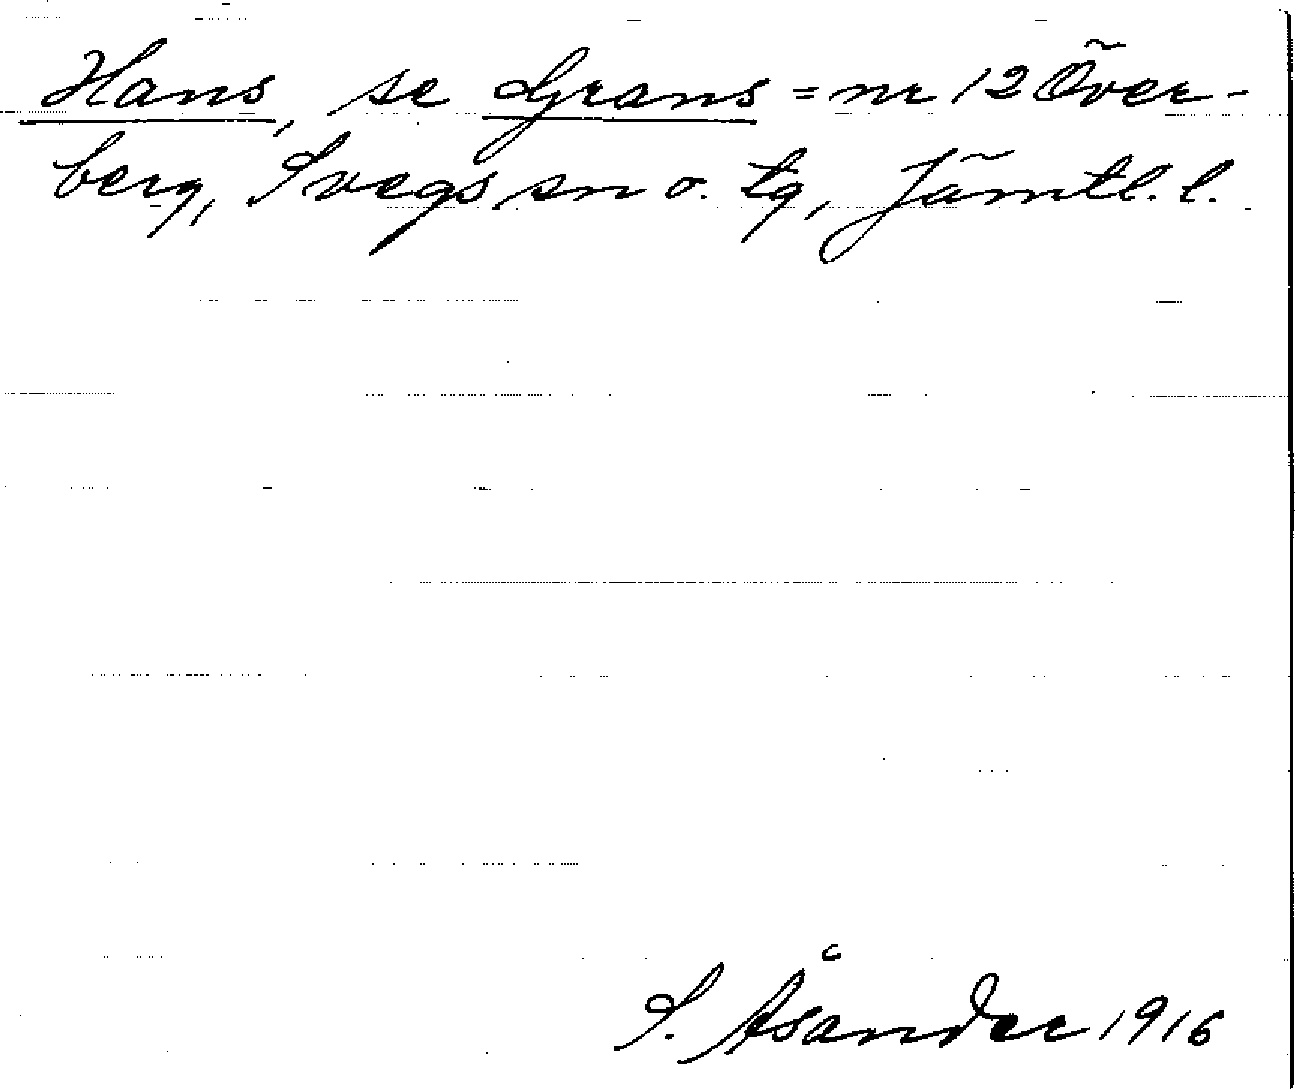 Hans, se Grans = nr 12 Över-
berg, Svegs sn o. tg, Jämtl. l.
S. Åsander 1916